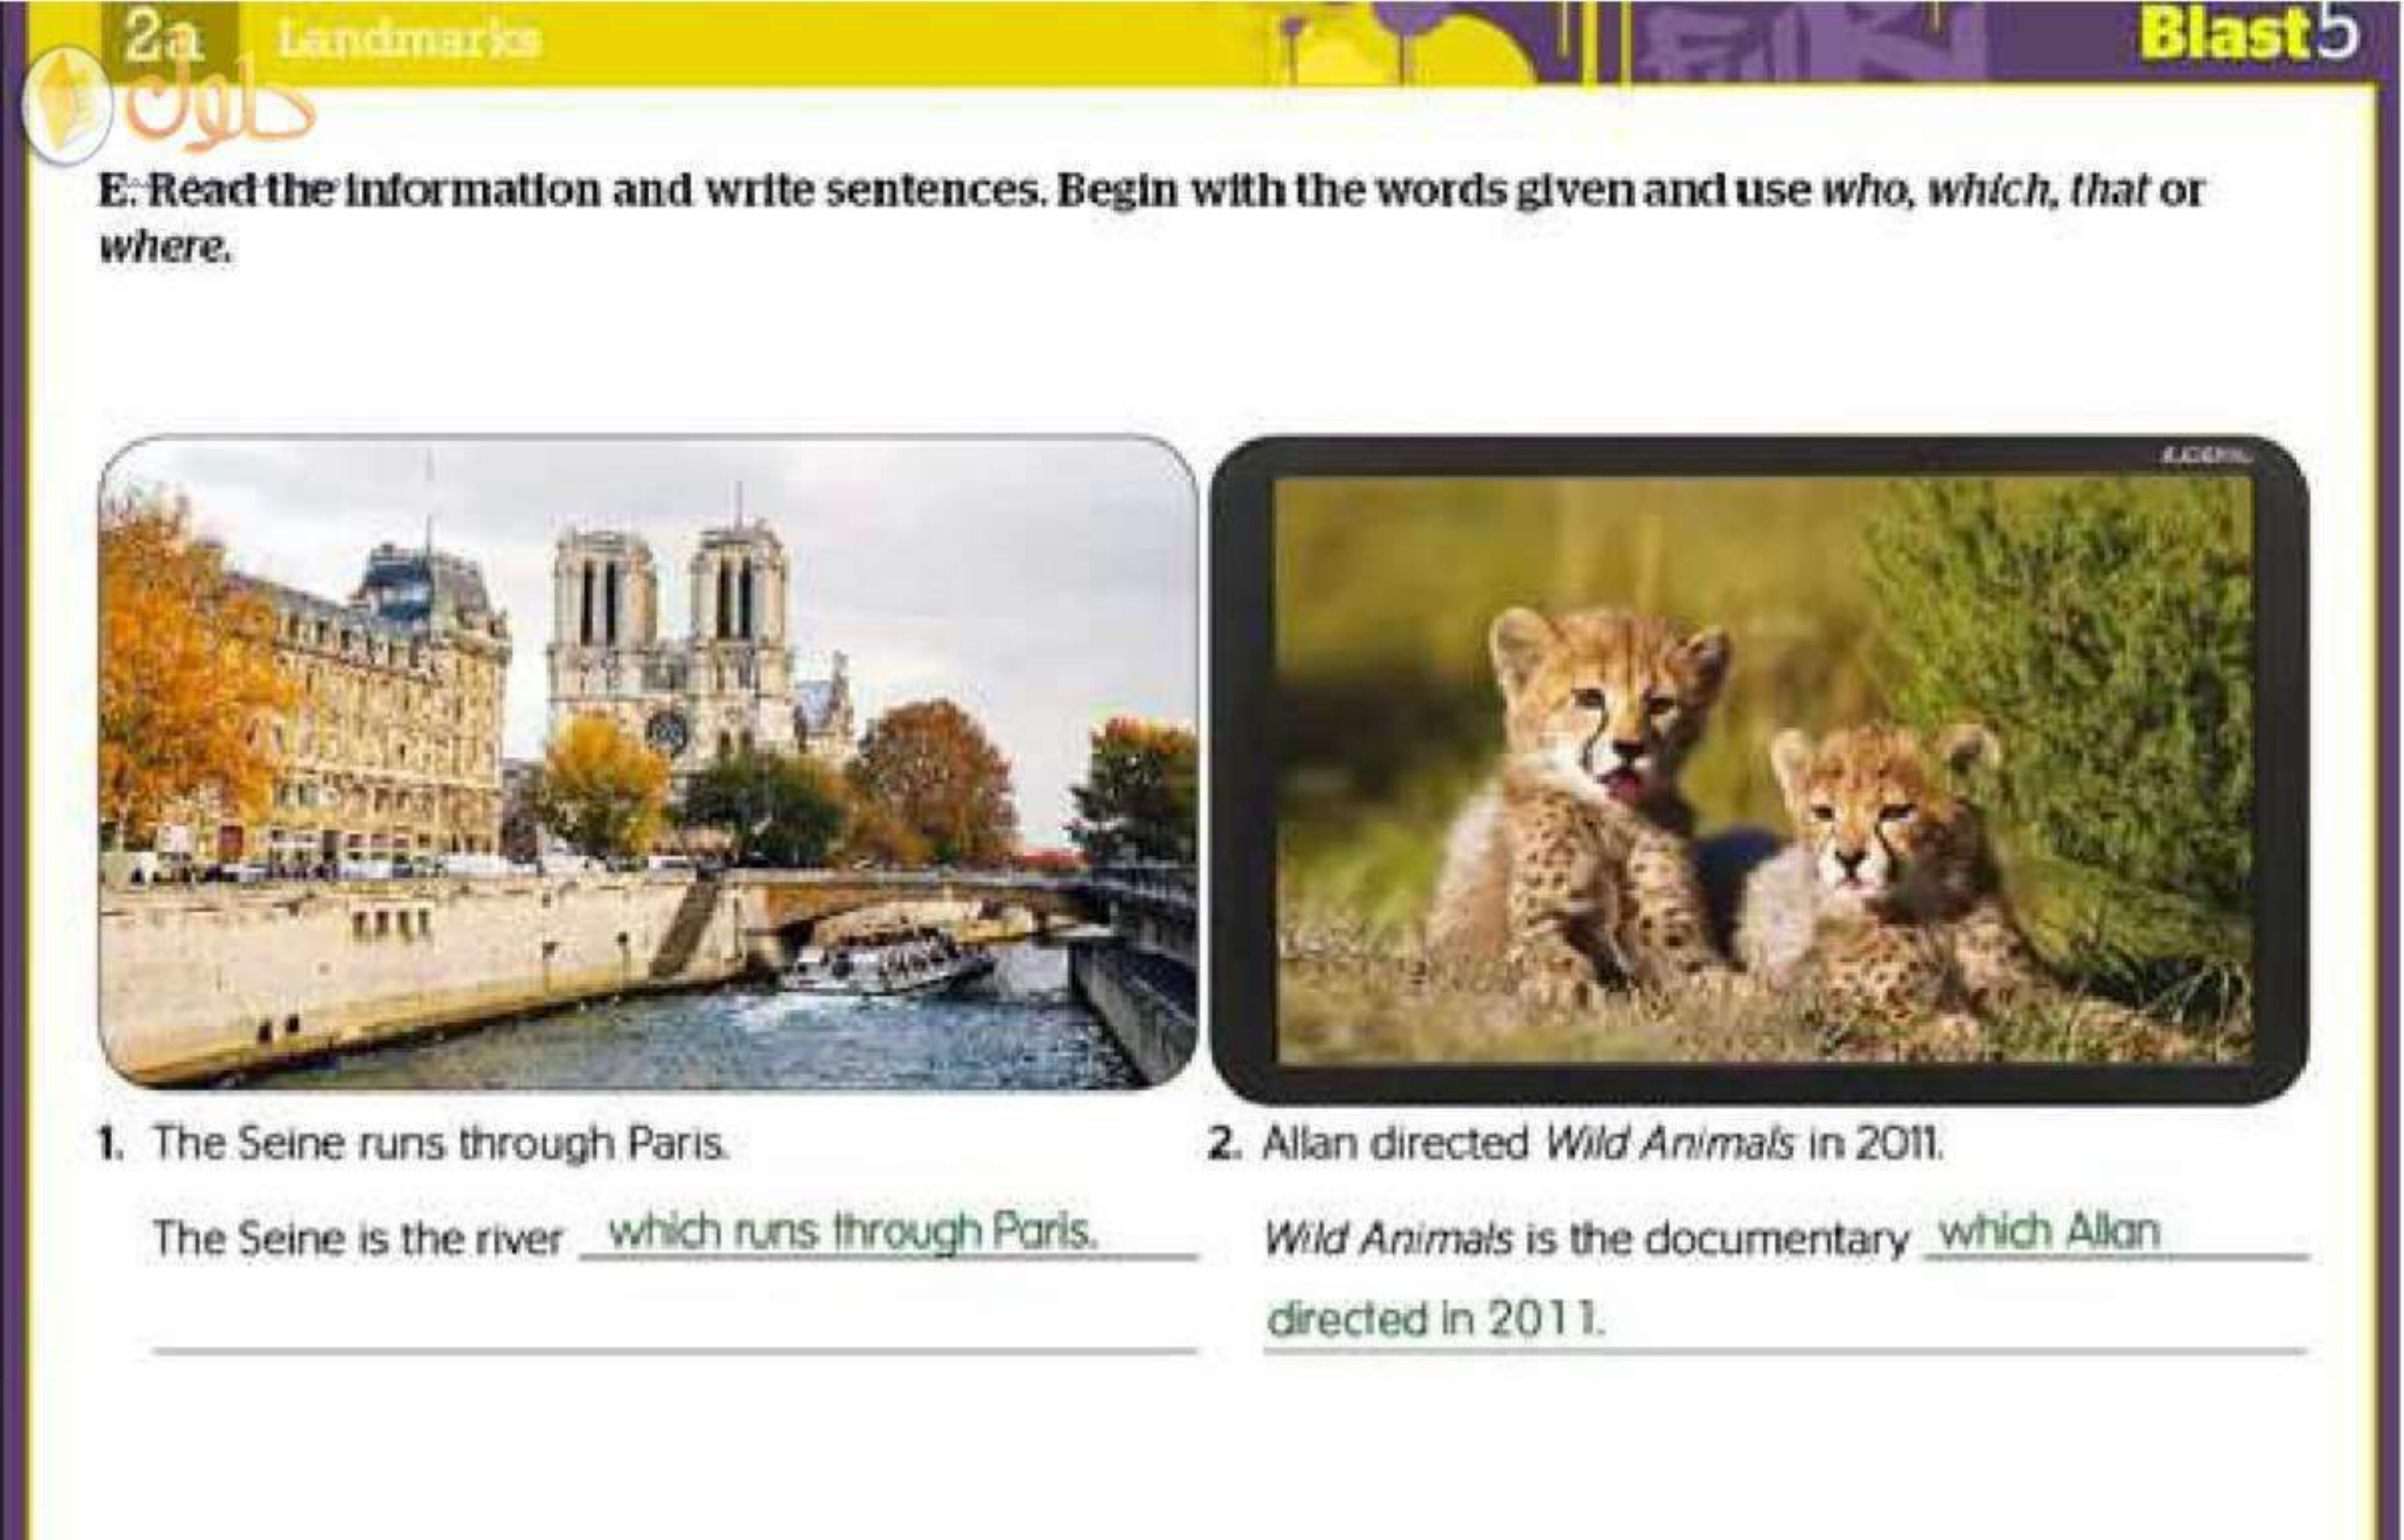 2a Landmarks Blast 5
حلول
E. Read the information and write sentences. Begin with the words given and use who, which, that or
where.
1. The Seine runs through Paris.
The Seine is the river which runs through Paris.
2. Allan directed Wild Animals in 2011.
Wild Animals is the documentary which Allan
directed in 2011.